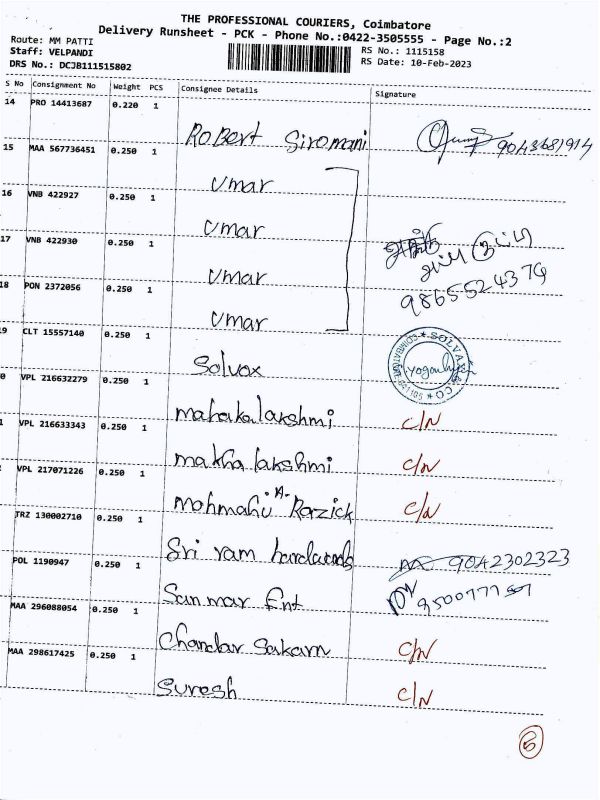 THE PROFESSIONAL COURIERS, Coimbatore
Delivery Runsheet - PCK - Phone No.:0422-3505555 - Page No.:2
Route: MM PATTI
Staff: VELPANDI
DRS No.: DCJB111515802
RS No.: 1115158
RS Date: 10-Feb-2023
S No Consignment No Weight PCS Consignee Details Signature
14 PRO 14413687 0.220 1 Robert Siromani 9043681914
15 MAA 567736451 0.250 1 Umar
16 VNB 422927 0.250 1 Umar
17 VNB 422930 0.250 1 Umar
18 PON 2372056 0.250 1 Umar 9865524374
9 CLT 15557140 0.250 1 Solvox
0 VPL 216632279 0.250 1 Mahakalakshmi C/N
1 VPL 216633343 0.250 1 Makha lakshmi C/N
VPL 217071226 0.250 1 A. Razick C/N
TRZ 130002710 0.250 1 Sri ram 9042302323
POL 1190947 0.250 1 Sanmar Ent
MAA 296088054 0.250 1 Chandar Sakarn C/N
MAA 298617425 0.250 1 Suresh C/N